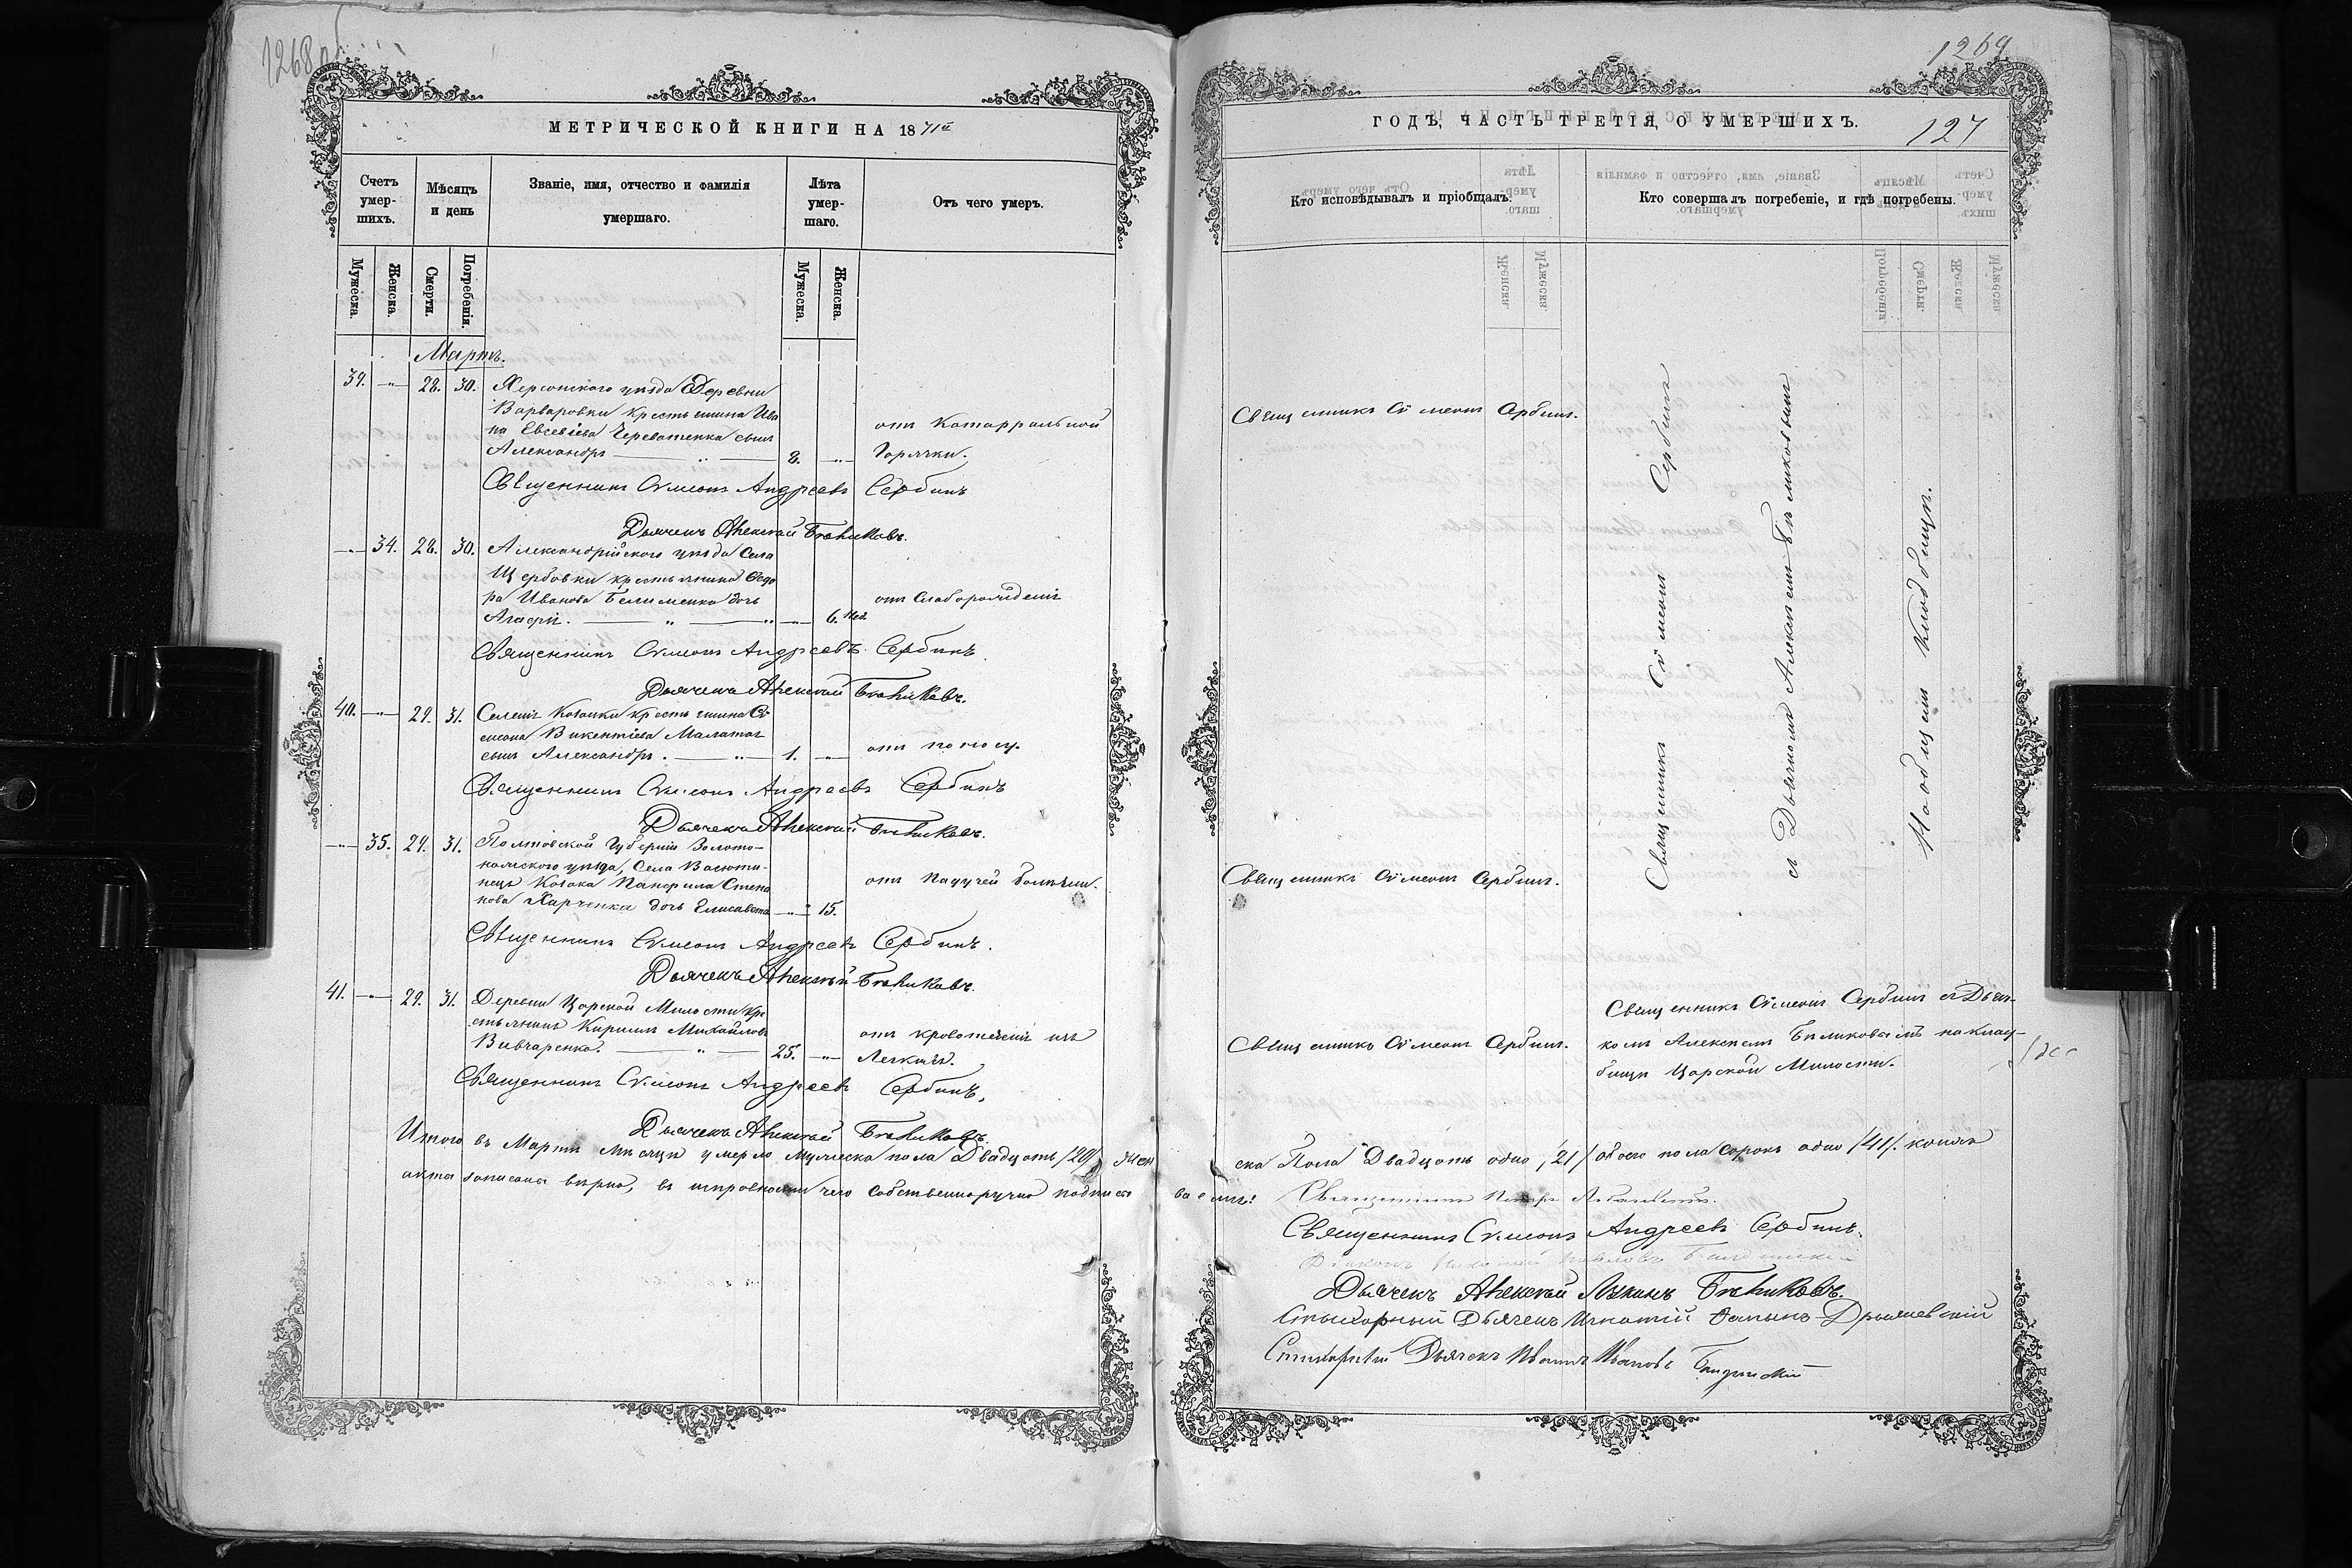 1268 об
МЕТРИЧЕСКОЙ КНИГИ НА 1871й
Счетъ умер-шихъ.
Мѣсяцъ и день
Званіе, имя, отчество и фамилія умершаго.
Лѣта умер-шаго.
Отъ чего умеръ.
Мужеска.
Женска.
Смерти.
Погребенія.
Мужеска.
Женска.
Мартъ.
39. 28. 30. Херсонскаго уѣзда Деревни
Варваровки крестьянина Ива
на Евсевіева Череватенка сынъ
Александръ 8.
отъ Катарральной
Горячки.
Священникъ Сѵмеонъ Андреевъ Сербинъ
Дьячекъ Алексѣй Бѣликовъ.
34. 28. 30. Александрійскаго уѣзда Села
Щербовки крестьянина Ѳедо
ра Иванова Белименка дочь
Агафія. 6. нед.
отъ Слаборожденія
Священникъ Сѵмеонъ Андреевъ Сербинъ.
Дьячекъ Алексѣй Бѣликовъ.
40. 29. 31. Селенія Козацки крестьянина Сѵ
меона Викентіева
сынъ Александръ. 1.
отъ поносу.
Священникъ Сѵмеонъ Андреевъ Сербинъ
Дьячекъ Алексѣй Бѣликовъ.
35. 29. 31. Полтавской Губерніи Золото-
ношскаго уѣзда, Села Васюти-
нецъ Козака Панфила Степа
нова Харченка дочь Елисавета 15.
отъ Падучей болѣзни.
Священникъ Сѵмеонъ Андреевъ Сербинъ.
Дьячекъ Алексѣй Бѣликовъ.
41. 29. 31. Деревни Царской Милости кре
стьянинъ Кириллъ Михайловъ
Вивчаренко. 25.
отъ кровотеченія изъ
Легкихъ.
Священникъ Сѵмеонъ Андреевъ Сербинъ,
Дьячекъ Алексѣй Бѣликовъ.
Итого въ Мартѣ Мѣсяцѣ умерло мужеска пола Двадцать /20/, жен
акта записана вѣрно, въ исправности чего собственноручно подписы
1269
127
ГОДЪ, ЧАСТЬ ТРЕТІЯ, О УМЕРШИХЪ.
Кто исповѣдывалъ и пріобщалъ.
Кто совершалъ погребеніе, и гдѣ погребены.
Священникъ Сѵмеонъ Сербинъ.
Священникъ Сѵмеонъ Сербинъ
съ Дьячкомъ Алексѣемъ Бѣликовымъ
На общемъ кладбищѣ.
Священникъ Сѵмеонъ Сербинъ.
Священникъ Сѵмеонъ Сербинъ.
Священникъ Сѵмеонъ Сербинъ съ Дьяч-
комъ Алексѣемъ Бѣликовымъ на клад-
бищѣ Царской Милости.
ска Пола Двадцать одно /21/ обоего пола сорокъ одно /41/. коихъ
ваемся: Священникъ Петръ
Священникъ Сѵмеонъ Андреевъ Сербинъ.
Дьячекъ Алексѣй Лукинъ Бѣликовъ.
Стихарный Дьячекъ Игнатій
Стихарный Дьячекъ Иванъ Ивановъ